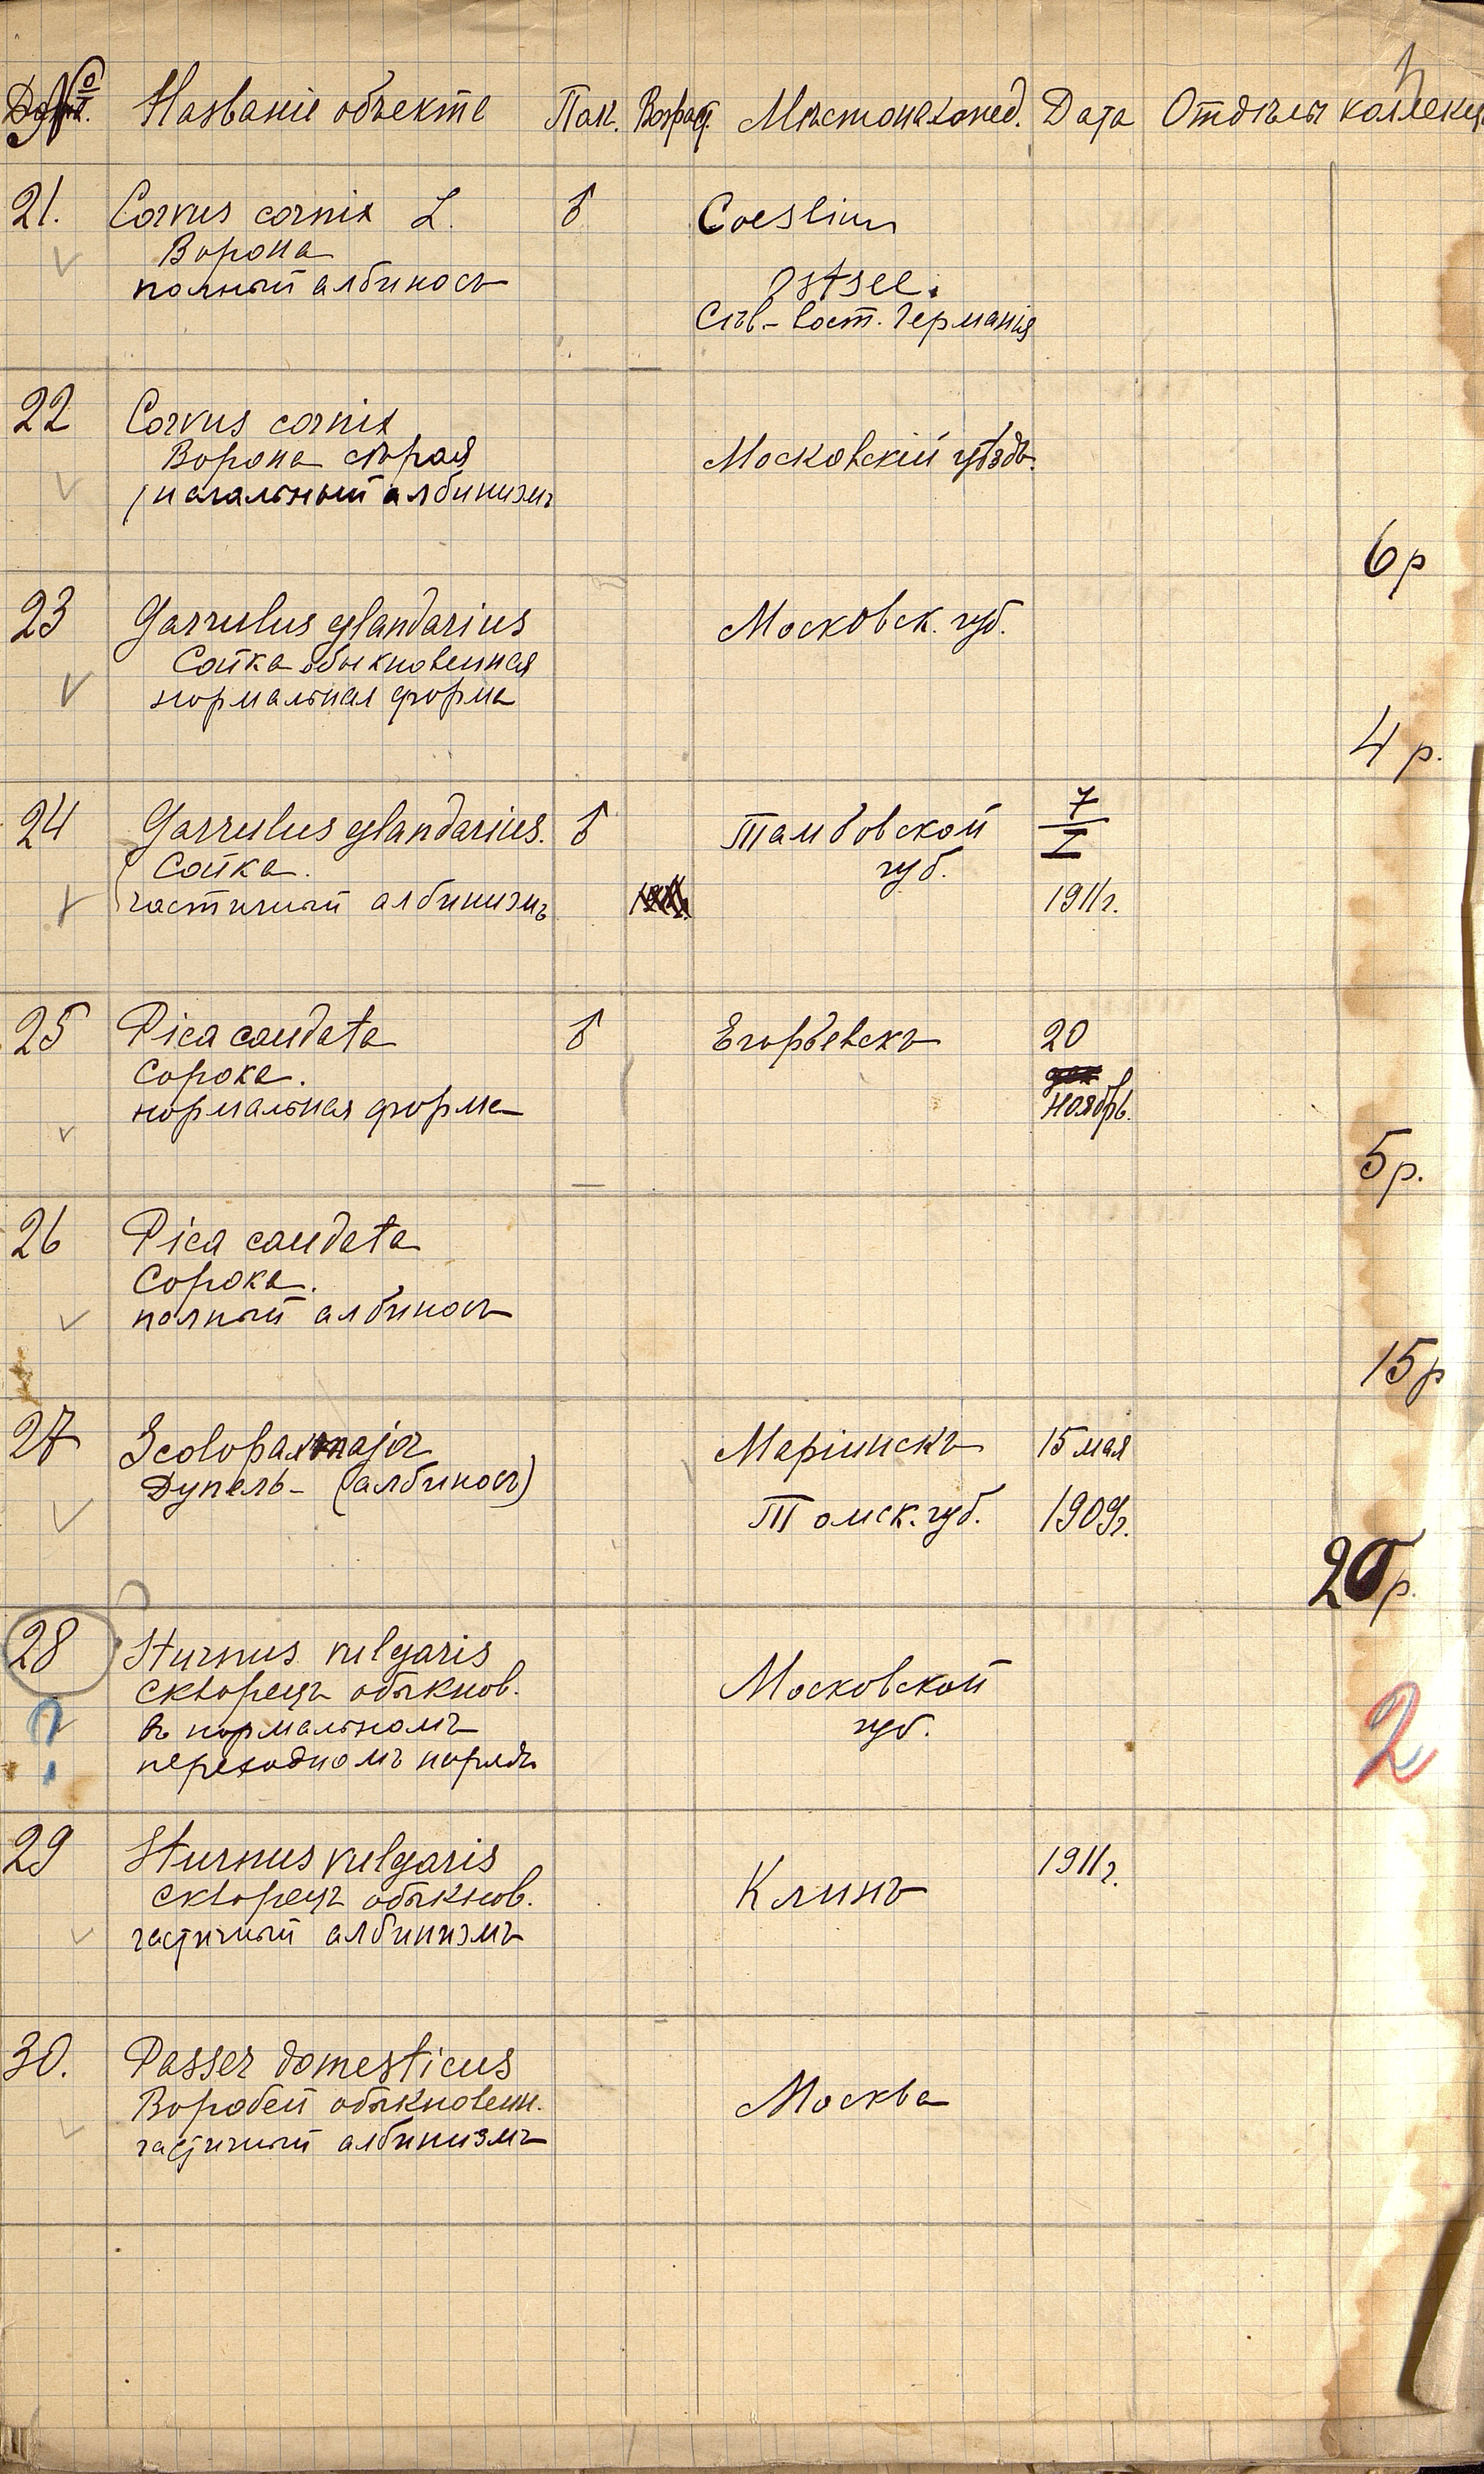 № Названіе объекта Пол. Возраст. Мѣстонахожд. Дата Отдѣлы коллекц
21. Corvus cornix L. ♂ Coeslin
Ворона
полный альбиносъ Ostsee.
Сѣв-вост. Германія
22 Corvus cornix
Ворона сѣрая Московскій уѣздъ.
альбинизмъ
6 р
23 Garrulus glandarius Московск. губ.
Сойка обыкновенная
нормальная форма
4 р.
24 Garrulus glandarius. ♂ Тамбовской 7/I
Сойка. губ.
частичный албинизмъ 1911г.
25 Pica caudata ♂ Егорьевскъ 20
Сорока.
нормальная форма ноябрь.
5р.
26 Pica caudata
Сорока.
полный албиносъ
15р
27 Scolopax major Маріинскъ 15 мая
Дупель- (албиносъ)
Томск. губ. 1909г.
20р.
28 Sturnus vulgaris
Скворецъ обыкнов. Московской
? въ нормальномъ губ. 2
переходномъ нарядѣ
29 Sturnus vulgaris 1911г.
Скворецъ обыкнов. Клинъ
частичный албинизмъ
30. Passer domesticus
Воробей обыкновенн. Москва
частичный албинизмъ